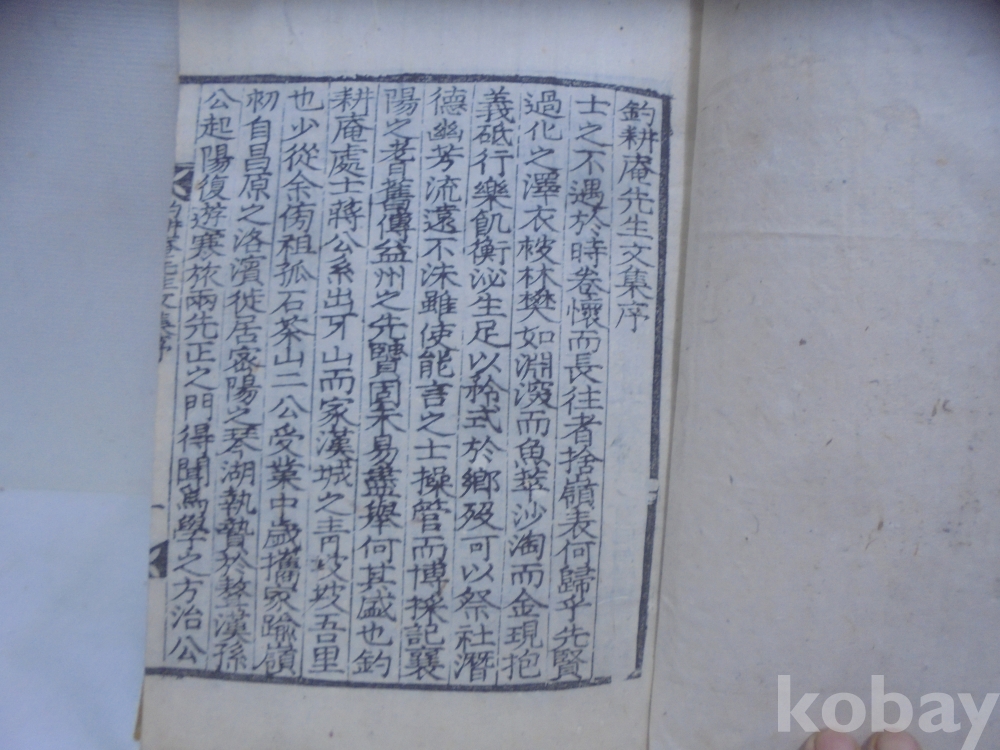 釣耕庵先生文集序
士之不遇於時卷懷而長往者捨嶺表何歸乎先賢
過化之澤衣被林樊如淵深而魚萃沙淘而金現抱
義砥行樂飢衡泌生足以矜式於鄉歿可以祭社潛
德幽芳流遠不沫雖使能言之士操管而博採記襄
陽之耆舊傳益州之先賢固未易盡舉何其盛也釣
耕庵處士蔣公系出牙山而家漢城之靑坡坡吾里
也少從余傍祖孤石茶山二公受業中歲攜家踰嶺
初自昌原之洛濱徙居密陽之琴湖執贄於聱漢孫
公起陽復遊寒旅兩先正之門得聞爲學之方治公
釣耕庵先生文集序
kobay